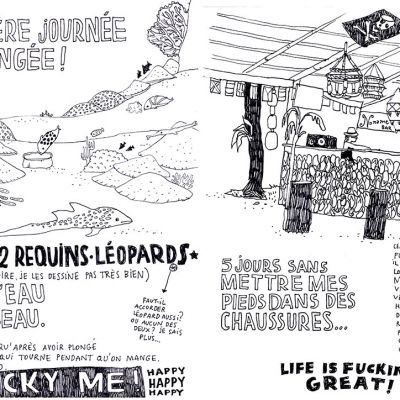 ÈRE JOURNÉE
NGÉE !
2 REQUINS-LÉOPARDS*
IRE, JE LES DESSINE PAS TRÈS BIEN)
'EAU
EAU.
FAUT-IL
ACCORDER
LÉOPARD AUSSI?
OU AUCUN DES
DEUX? JE SAIS
PLUS...
QU'APRÈS AVOIR PLONGÉ
QUI TOURNE PENDANT QU'ON MANGE.
CKY ME!
HAPPY
HAPPY
HAPPY
BAR
5 JOURS SANS
METTRE MES
PIEDS DANS DES
CHAUSSURES...
LIFE IS FUCKIN
GREAT!